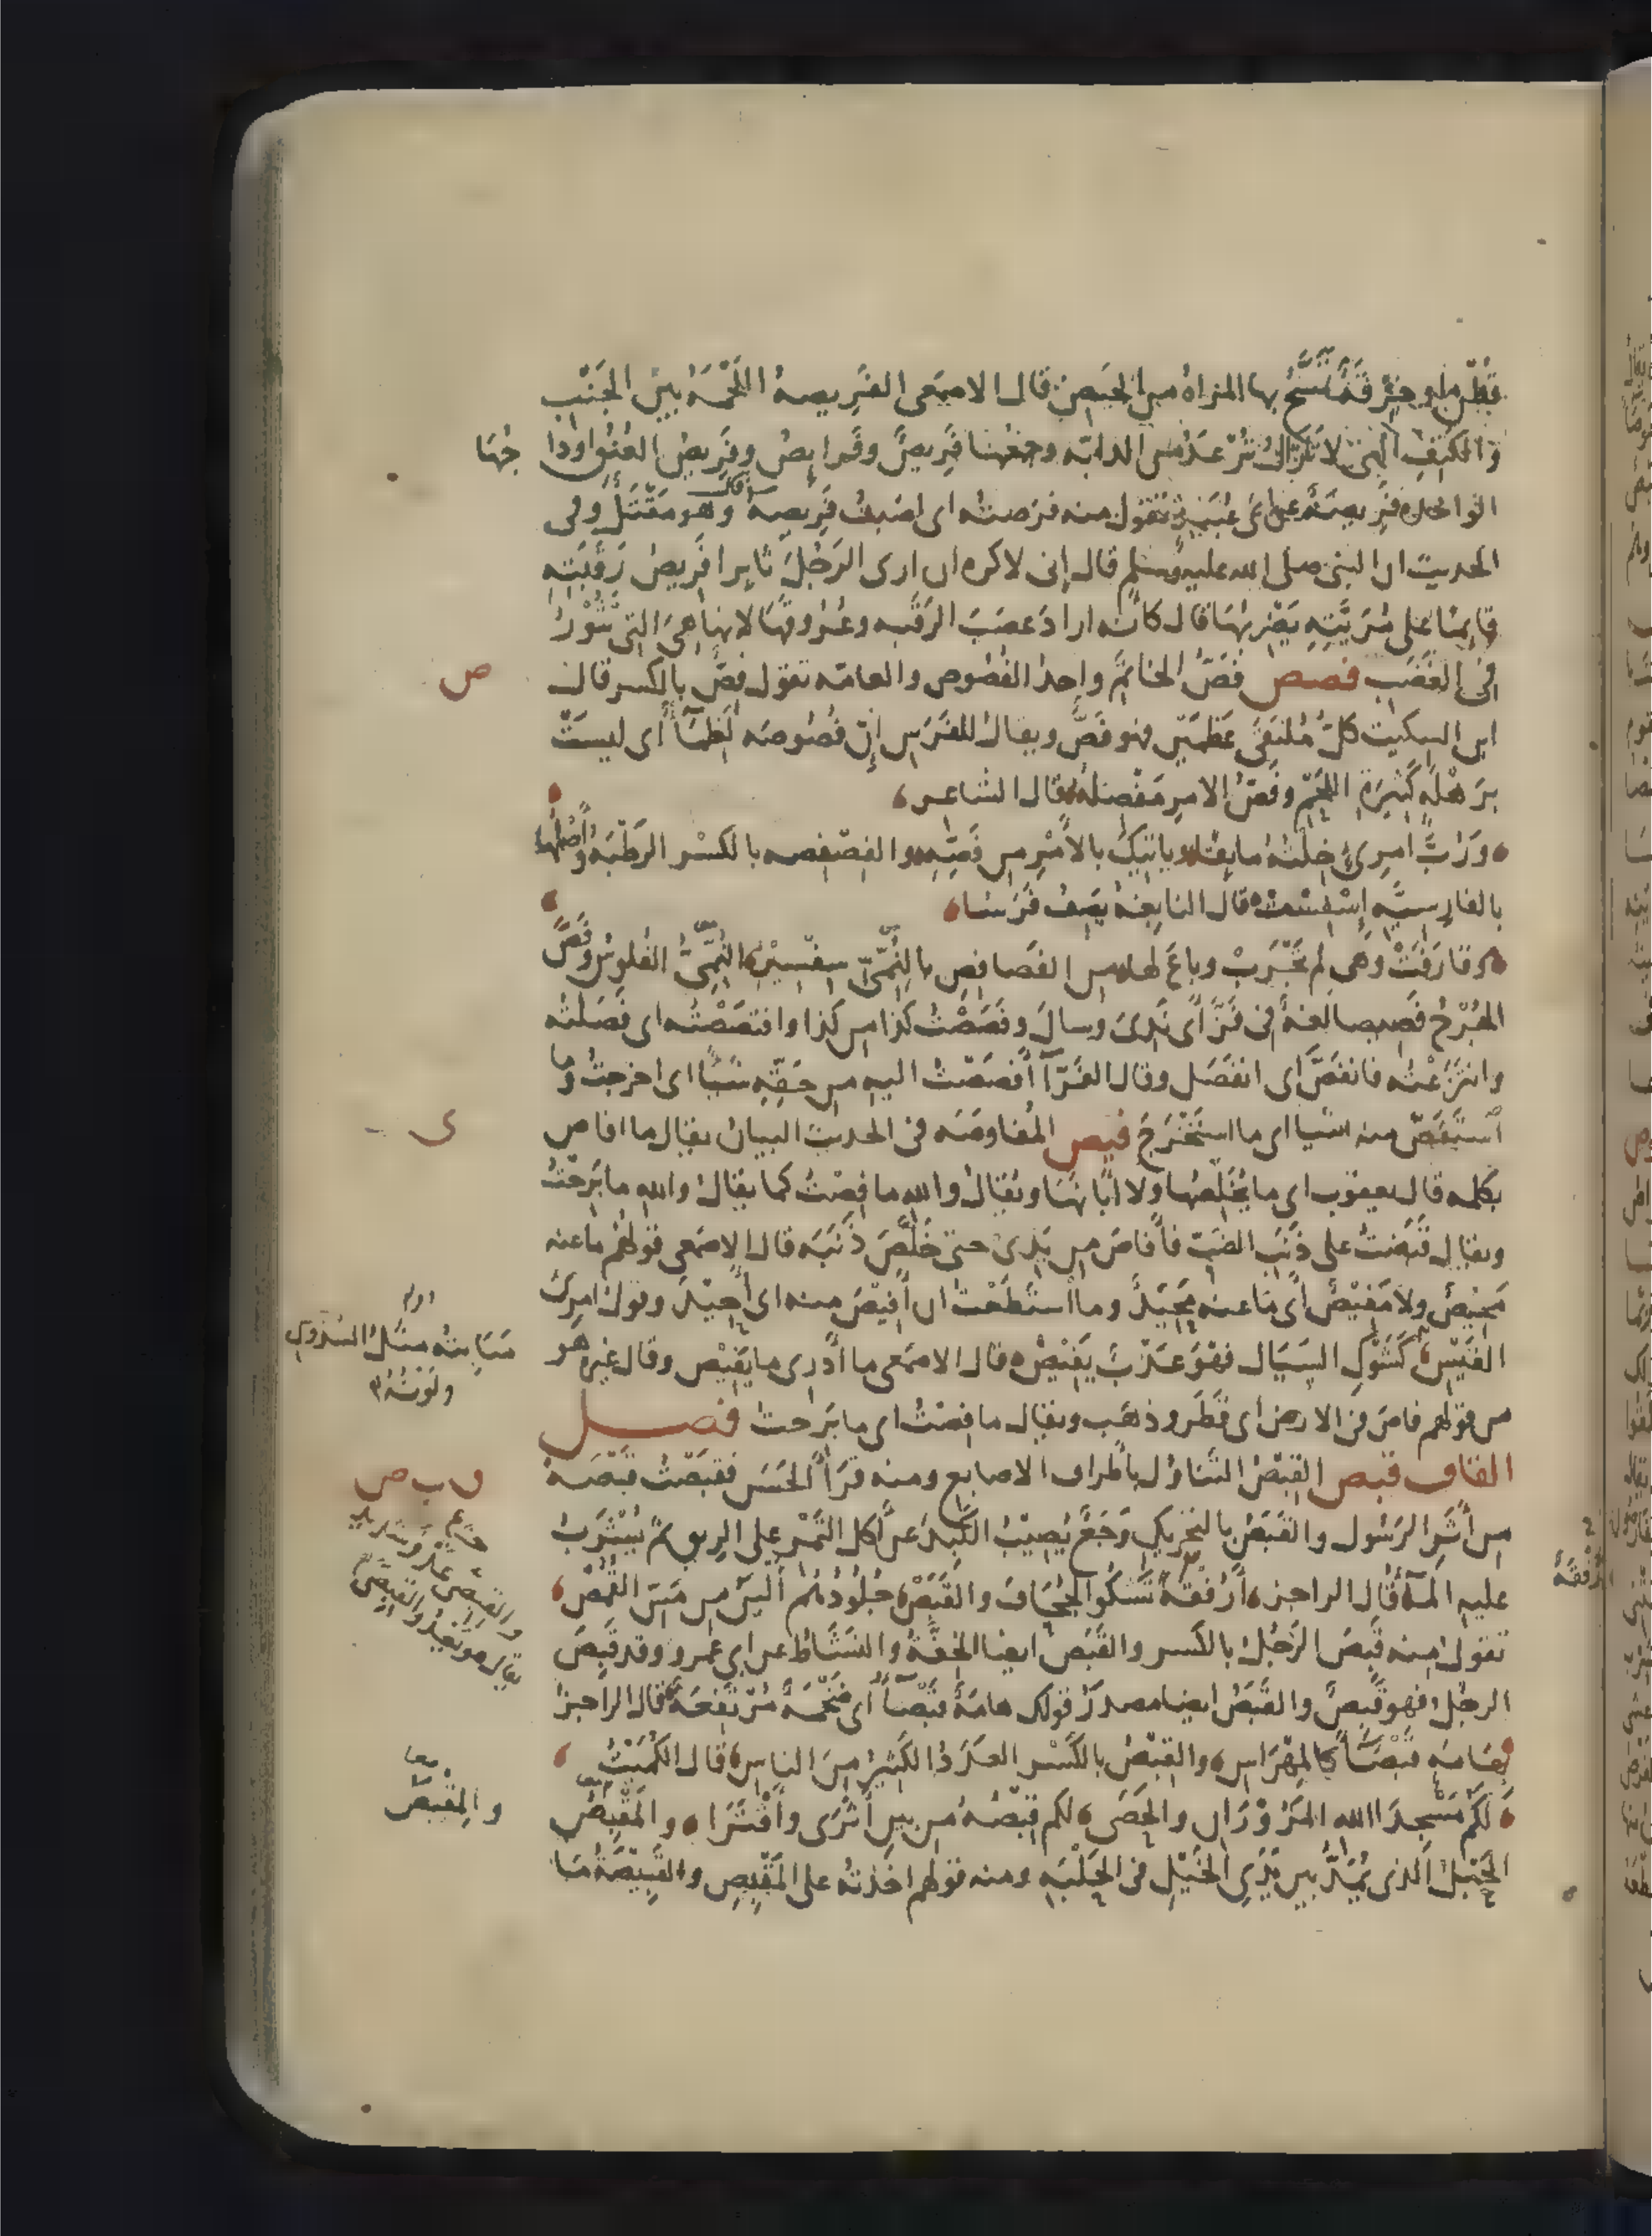 قُطْن او خِرْقَة تَمَسَّحُ بها المرأة من الحَيض قال الاصمعى الفَرِيصة اللَّحْمَة بين الجَنْب
وَالكَتِفِ التى لا تَزالُ تُرْعَدُ من الدابّه وجمعها فَرِيصٌ وفَرايصُ وفَرِيصُ العُنُق اودا جُهَا
الواحده فَرِيصَةٌ عن ابى عُبَيدٍ تقول منه فرَصته اى اصَبتُ فَرِيصته قال وهو مَقْتَلٌ وفى
الحديث ان النبى صلى الله عليه وسلم قال إنى لاكره ان ارى الرَجُلَ ثايرا فَرِيصُ رَقَبَتِه
قايمًا على مُرَيَّتِهِ يَضْربُهَا قال كانّه اراد عَصَبَ الرَقَبه وعُرُوقَهَا لانها هىَ التى تَثُورُ
فى الغَضَب فصص فَصُّ الخاتَمِ واحدُ الفُصُوص والعامّه تقول فِصٌّ بالكسر قال
ابن السكيت كلُّ مُلتَقَى عَظمَيْنِ فهو فَصٌّ ويقال للفَرَسِ إنّ فُصُوصَه لَظِمَآءٌ أى ليسَتْ
برَهْلَهٍ كَثِيرَةِ اللَحْمِ وفَصُّ الامرِ مَفْصِلُهُ قال الشاعر
ورُبَّ امرِىءٍ خِلْتُهُ مايقًا ويَاتِيكَ بالأَمْرِ من فَصِّهِ والفِصْفِصه بالكسْر الرَطْبَه وأصْلُها
بالفارسيَّه إسْفِسْت قال النابغهُ يَصِفُ فَرَسًا
وقارَفَتْ وهى لم تَجْرَبْ وباعَ لها من الفَصافِصِ بالنُمِّىِّ سِفْسِيْرُ النُمِّىُّ الفُلوسُ وفَصَّ
الجُرْحُ فَصِيصًا لغةٌ فى فَزَّ أى نَدِىَ وسالَ وفَصَصْتُ كذا من كذا وافتصَصْتُه اى فَصَلتُه
وانتَزَعْتُه فانفَصَّ اى انفَصَل وقال الفَرَّآءُ أفْصَصْتُ اليه من حَقِّهِ شَيًا اى اخرجتُ وما
اسْتَفَصَّ منه شيا اى ما استَخْرَجَ فيص المُفاوصَه فى الحديث البيان يقال ما افاصَ
بكلمه قال يعقوب اى ما يُخَلِّصُها ولا ابانَهَا ويُقال والله ما فِصْتُ كما يقالُ والله ما بَرِحْتُ
ويقال قَبَضْتُ على ذَنَبِ الضَبِّ فأفاصَ من يَدِى حتى خَلُصَ ذَنَبُه قال الاصمعى قولهُم ما عنه
مَحِيْصٌ ولا مَفِيْصٌ أى ما عنه مَحِيْدٌ وما اسْتَطَعْتُ ان أفِيْصَ منه اى أحِيْدَ وقولُ امرِئ
القَيْسِ كَشَوْكِ السَيَال فهْوَ عَذْبٌ يَفِيْصُ قال الاصمَعى ما أَدْرى ما يَفِيْص وقال غيرُه هو
من قولهم فاصَ فى الارض اى قَطَر وذهَب ويقال ما فِصْتُ اى ما بَرِحتُ فصل
القاف قبص القَبْصُ التَناوُل بأطراف الاصابع ومنه قَرَأ الحَسَن فقبَصْتُ قَبْصَهً
من أَثَرِ الرَسُول والقَبَصُ بالتحريك وَجَعٌ يُصِيْبُ الكَبِدَ عن اكل التَمْر على الريق ثم يُشْرَبُ
عليه المآءُ قال الراجز أرُفْقَةٌ تَشْكُو الجُحَافَ والقَبَصْ جُلُودُهُمْ أَلْيَنُ من مَسِّ القُمُصْ
تقول منه قَبِصَ الرَجُلُ بالكسر والقَبَصُ ايضا الخِفَّةُ والنَشَاطُ عن ابى عمرو وقد قَبِصَ
الرجُل فهو قَبِصٌ والقَبَصُ ايضا مصدرُ قولك هامَةٌ قَبْصَآءُ اى ضَخْمَةٌ مُرْتَفِعَةٌ قال الراجز
بِهَامَهٍ قَبْصَآءَ كالمِهْرَاسِ والقِبْصُ بالكَسْر العَدَدُ الكَثِيْرُ مِنَ الناس قال الكُمَيْتُ
لَكُم مَسْجِدَا الله المَزُوْرَان والحَصَى لكم قِبْصُهُ من بين أَثْرَى وأَقْتَرَا والمَقْبِصُ
الحَبْلُ الذى يُمَدُّ بين يَدَىِ الخَيْلِ فى الحَلْبَهِ ومنه قولهم اخَذتُه على المَقْبِصِ والقَبِيْصَةُ مَا
ص
ى
اوله
مَنَابِتُه مثلُ السُدُوسِ
ولَونُهُ
ق ب ص
معا
والمِقْبَصُ